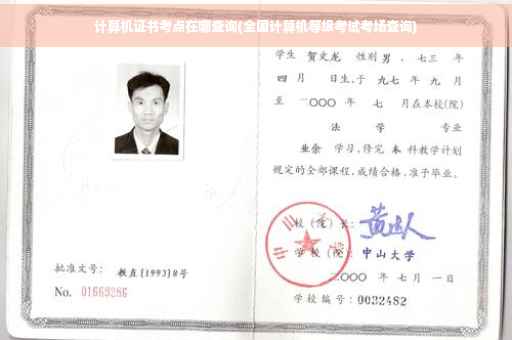 计算机证书考点在哪查询(全国计算机等级考试考场查询)
学生 贺文龙 性别 男 、七三 年
四 月 日生,于 九七 年 九 月
至 二〇〇〇 年 七 月在本校(院)
法 学 专业
业余 学习,修完 本 科教学计划
规定的全部课程,成绩合格,准予毕业。
校(院)长:
学校(院): 中山大学
二〇〇〇 年 七 月 一 日
学校编号: 0032482
批准文号: 教直[1993]8号
No. 01663286